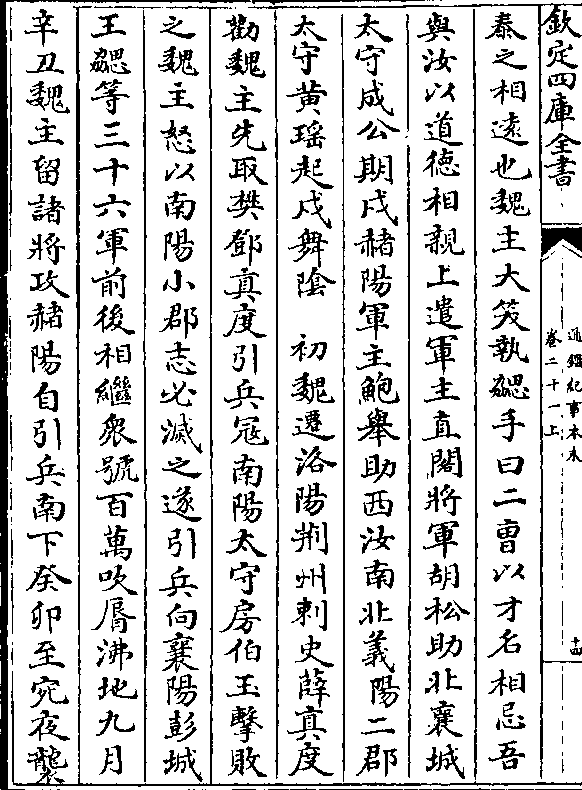 欽定四庫全書
通鑑紀事本末
卷二十一上
十四
泰之相遠也魏主大笑執勰手曰二曹以才名相忌吾
與汝以道德相親上遣軍主直閤將軍胡松助北襄城
太守成公期戍赭陽軍主鮑舉助西汝南北義陽二郡
太守黄瑶起戍舞陰　初魏遷洛陽荆州刺史薛真度
勸魏主先取樊鄧真度引兵冦南陽太守房伯玉擊敗
之魏主怒以南陽小郡志必滅之遂引兵向襄陽彭城
王勰等三十六軍前後相繼衆號百萬吹脣沸地九月
辛丑魏主留諸將攻赭陽自引兵南下癸卯至宛夜襲